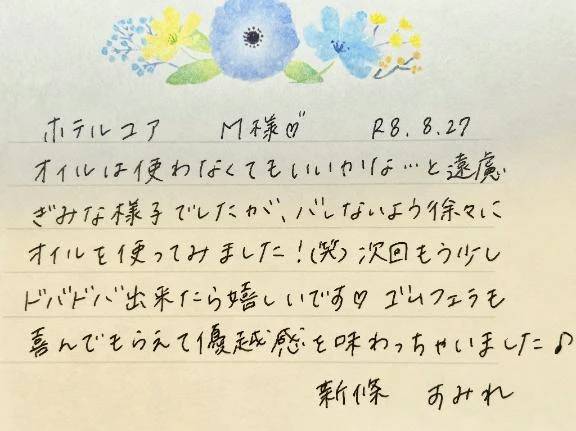 ホテルコア M様♡ R8.8.27
オイルは使わなくてもいいかな…と遠慮
ぎみな様子でしたが、バレないよう徐々に
オイルを使ってみました!(笑)次回もう少し
ドバドバ出来たら嬉しいです♡ ゴムフェラも
喜んでもらえて優越感を味わっちゃいました♪
新條 すみれ